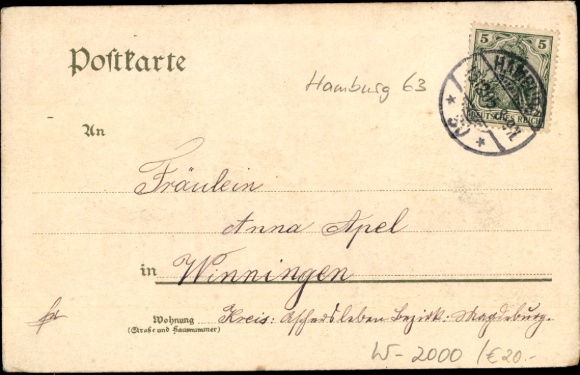 Postkarte
5 5
DEUTSCHES REICH
HAMBURG
Hamburg 63
An
Fräulein
Anna Apel
in Winningen
Wohnung Kreis: Aschersleben Bezirk: Magdeburg.
(Straße und Hausnummer)
W-2000 /€20.-